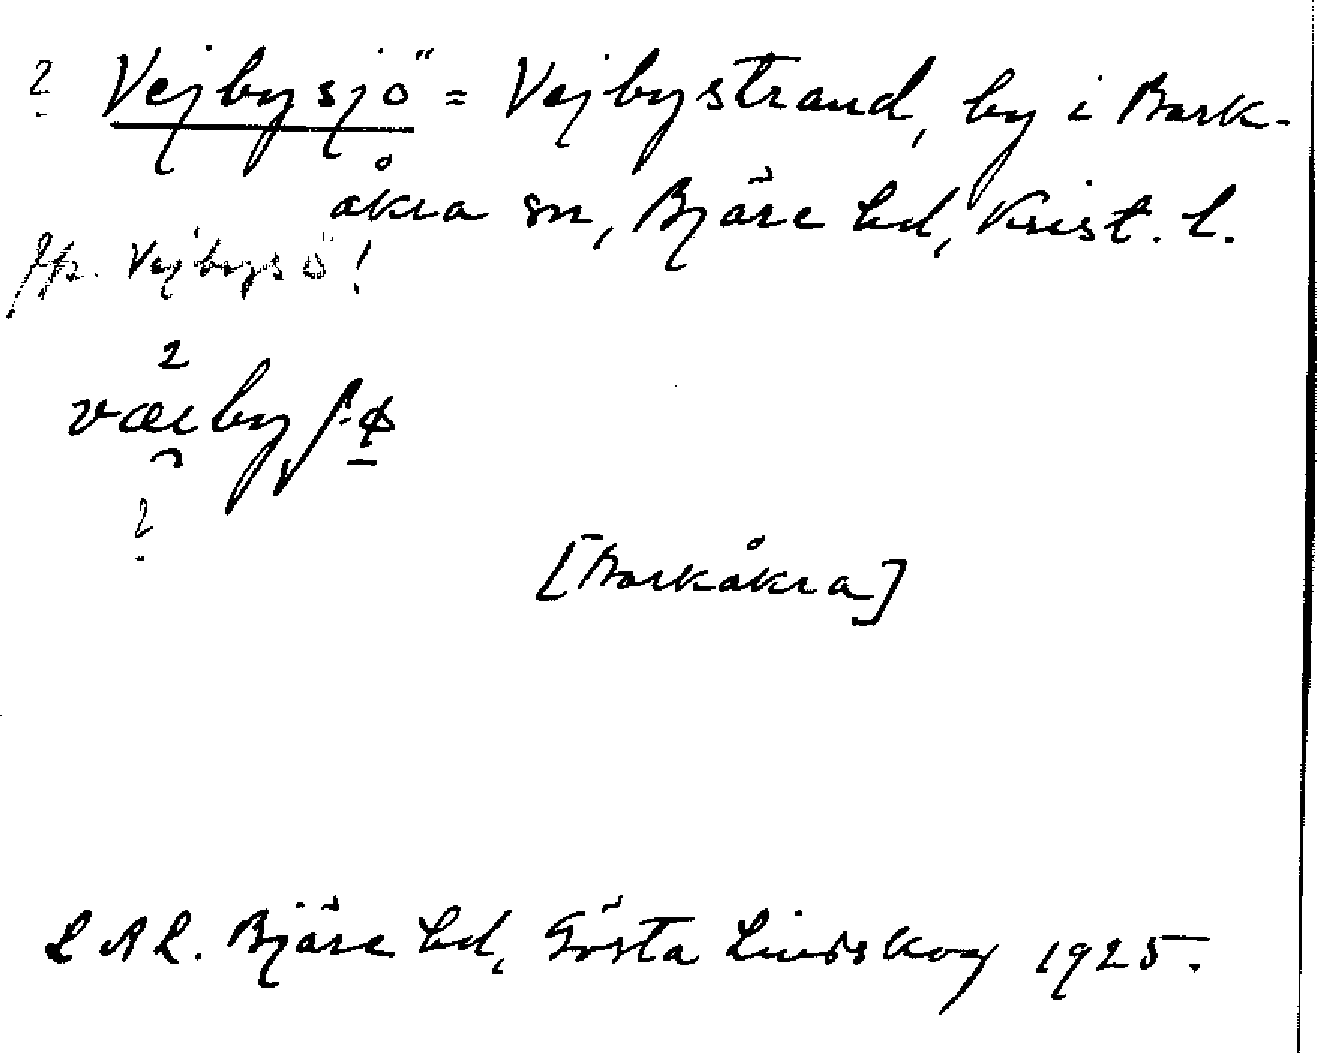 ? Vejbysjö = Vejbystrand, by i Bark-
åkra sn, Bjäre hd, Krist. l.
Jfr. Vejbysö!
2
væiby
?
[Barkåkra]
LAL. Bjäre hd, Gösta Lindskog 1925.